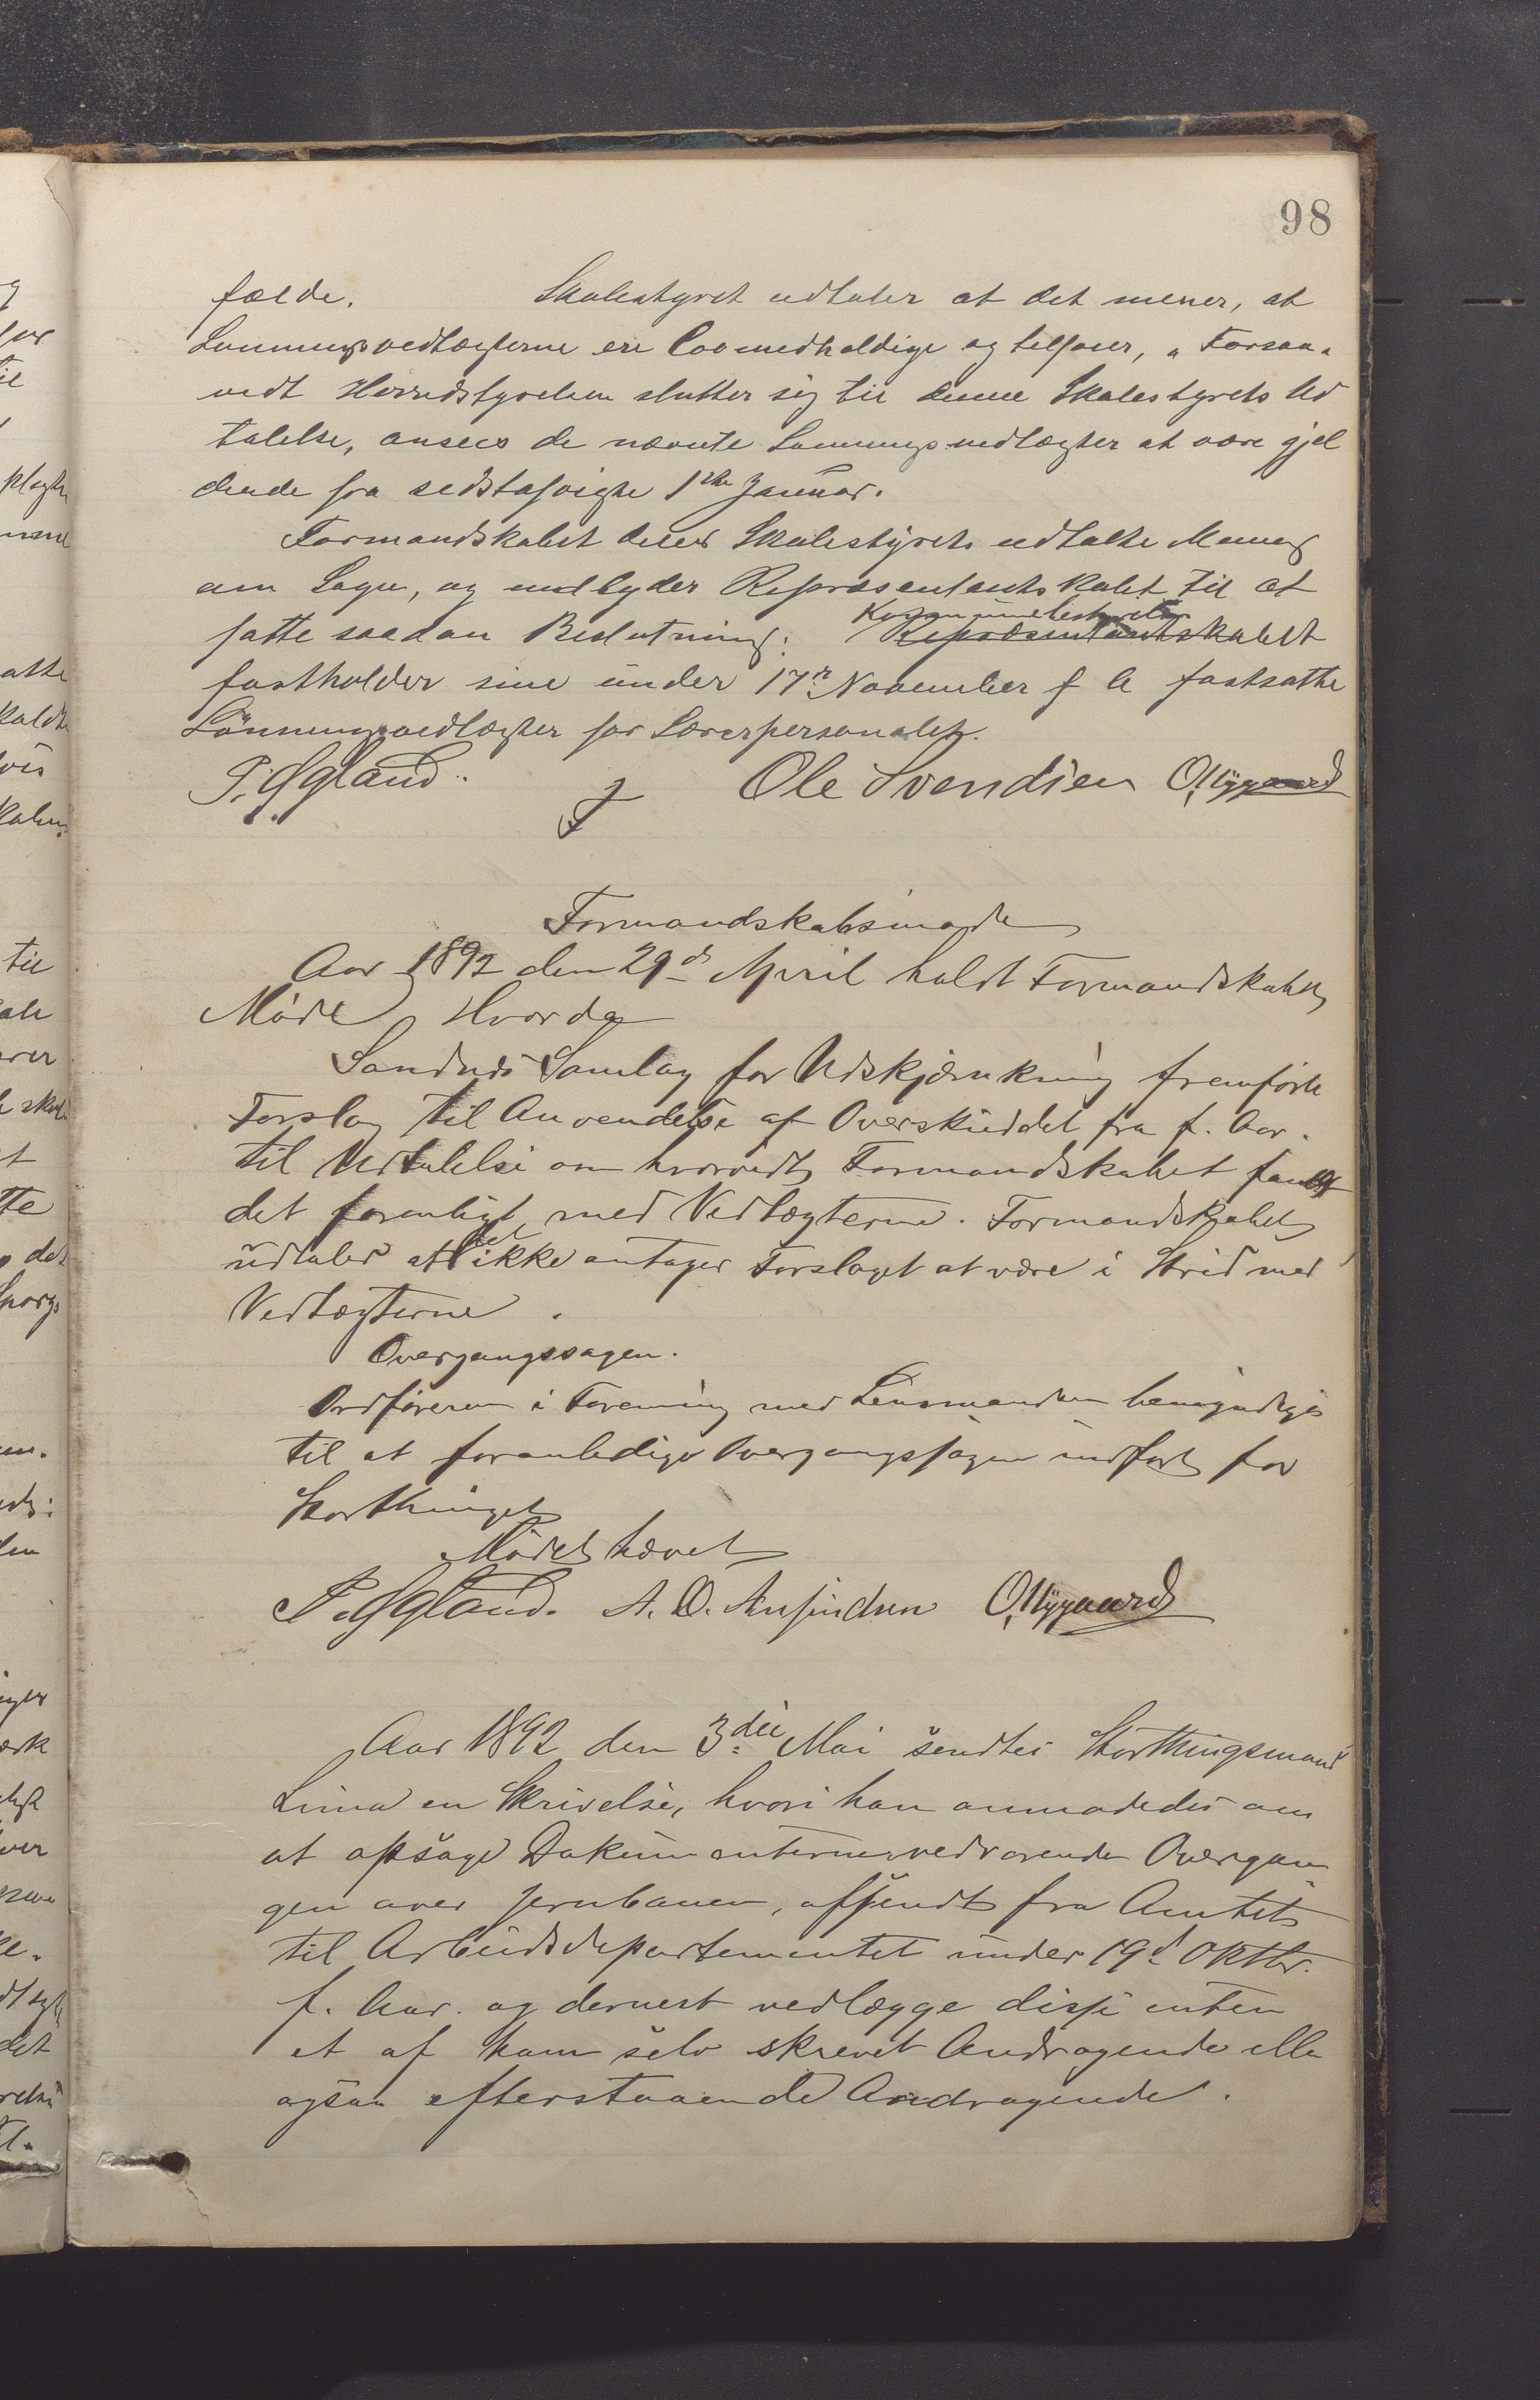 98
fælde. Skolestyret udtaler at det mener, at
Lønningsvedtægterne ere lovmedholdige og tilføier, „Forsaa-
vidt Herredstyrelsen slutter sig til denne Skolestyrets Ud
talelse, ansees de nævnte Lønningsvedtægter at være gjel
dende fra sidstafvigte 1ste Januar.
Formandskabet deler Skolestyrets udtalte Mening
om Sagen, og indbyder Repræsentantskabet til at
fatte saadan Beslutning: Kommunebestyrelsen Repræsentantskabet
fastholder sine under 17n November f A fastsatte
Lønningsvedtægter for Lærerpersonalet.
P. Ggland Ole Svendsen O. Nygaard
Formandskabsmøde
Aar 1892 den 29d April holdt Formandskabet
Møde Hvorda
Sandnes Samlag for Udskjænkning fremførte
Forslag til Anvendelse af Overskuddet fra f. Aar.
til Udtalelse om hvorvidt Formandskabet fandt
det foreneligt med Vedtægterne. Formandskabet
udtaler at det ikke antager Forslaget at være i Strid med
Vedtægterne.
Overgangssagen.
Ordføreren i Forening med Lensmanden bemyndiges
til at foranledige Overgangssagen indført for
Storthinget
Mødet hævet
P. Ggland. A. O. O. Nygaard
Aar 1892 den 3die Mai sendtes Storthingsmand
Lima en Skrivelse, hvori han anmodedes om
at opsøge Dokumenterne vedrørende Overgan
gen over Jernbanen, afsendt fra Amtet
til Arbeidsdepartementet under 19d Oktbr.
f. Aar. og dernest vedlægge disse enten
et af ham selv skrevet Andragende elle
ogsaa efterstaaende Andragende.